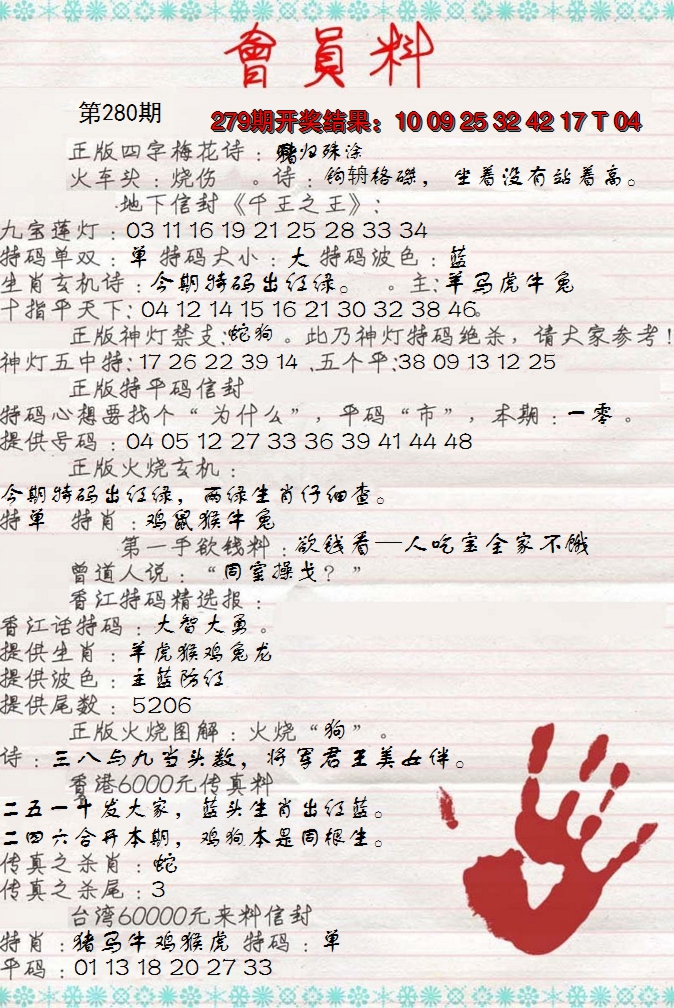 會員料
第280期
279期开奖结果：10 09 25 32 42 17 T 04
正版四字梅花诗：归殊涂
火车头：烧伤 。诗：钩辀格磔，坐着没有站着高。
地下信封《千王之王》：
九宝莲灯：03 11 16 19 21 25 28 33 34
特码单双：单 特码大小：大 特码波色：蓝
生肖玄机诗：今期特码出红绿。 。主：羊马虎牛兔
十指平天下：04 12 14 15 16 21 30 32 38 46。
正版神灯禁支：蛇狗。此乃神灯特码绝杀，请大家参考！
神灯五中特：17 26 22 39 14 .五个平：38 09 13 12 25
正版特平码信封
特码心想要找个“为什么”，平码“市”，本期：一零。
提供号码：04 05 12 27 33 36 39 41 44 48
正版火烧玄机：
今期特码出红绿，两绿生肖仔细查。
特单 特肖：鸡鼠猴牛兔
第一手欲钱料：欲钱看—人吃宝全家不饿
曾道人说：“同室操戈？”
香江特码精选报：
香江话特码：大智大勇。
提供生肖：羊虎猴鸡兔龙
提供波色：主蓝防红
提供尾数：5206
正版火烧图解：火烧“狗”。
诗：三八与九当头数，将军君王美女伴。
香港6000元传真料
二五一十发大家，蓝头生肖出红蓝。
二四六合开本期，鸡狗本是同根生。
传真之杀肖：蛇
传真之杀尾：3
台湾60000元来料信封
特肖：猪马牛鸡猴虎 特码：单
平码：01 13 18 20 27 33